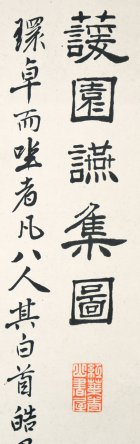 蘐園讌集圖
環卓而坐者凡八人其白首皓